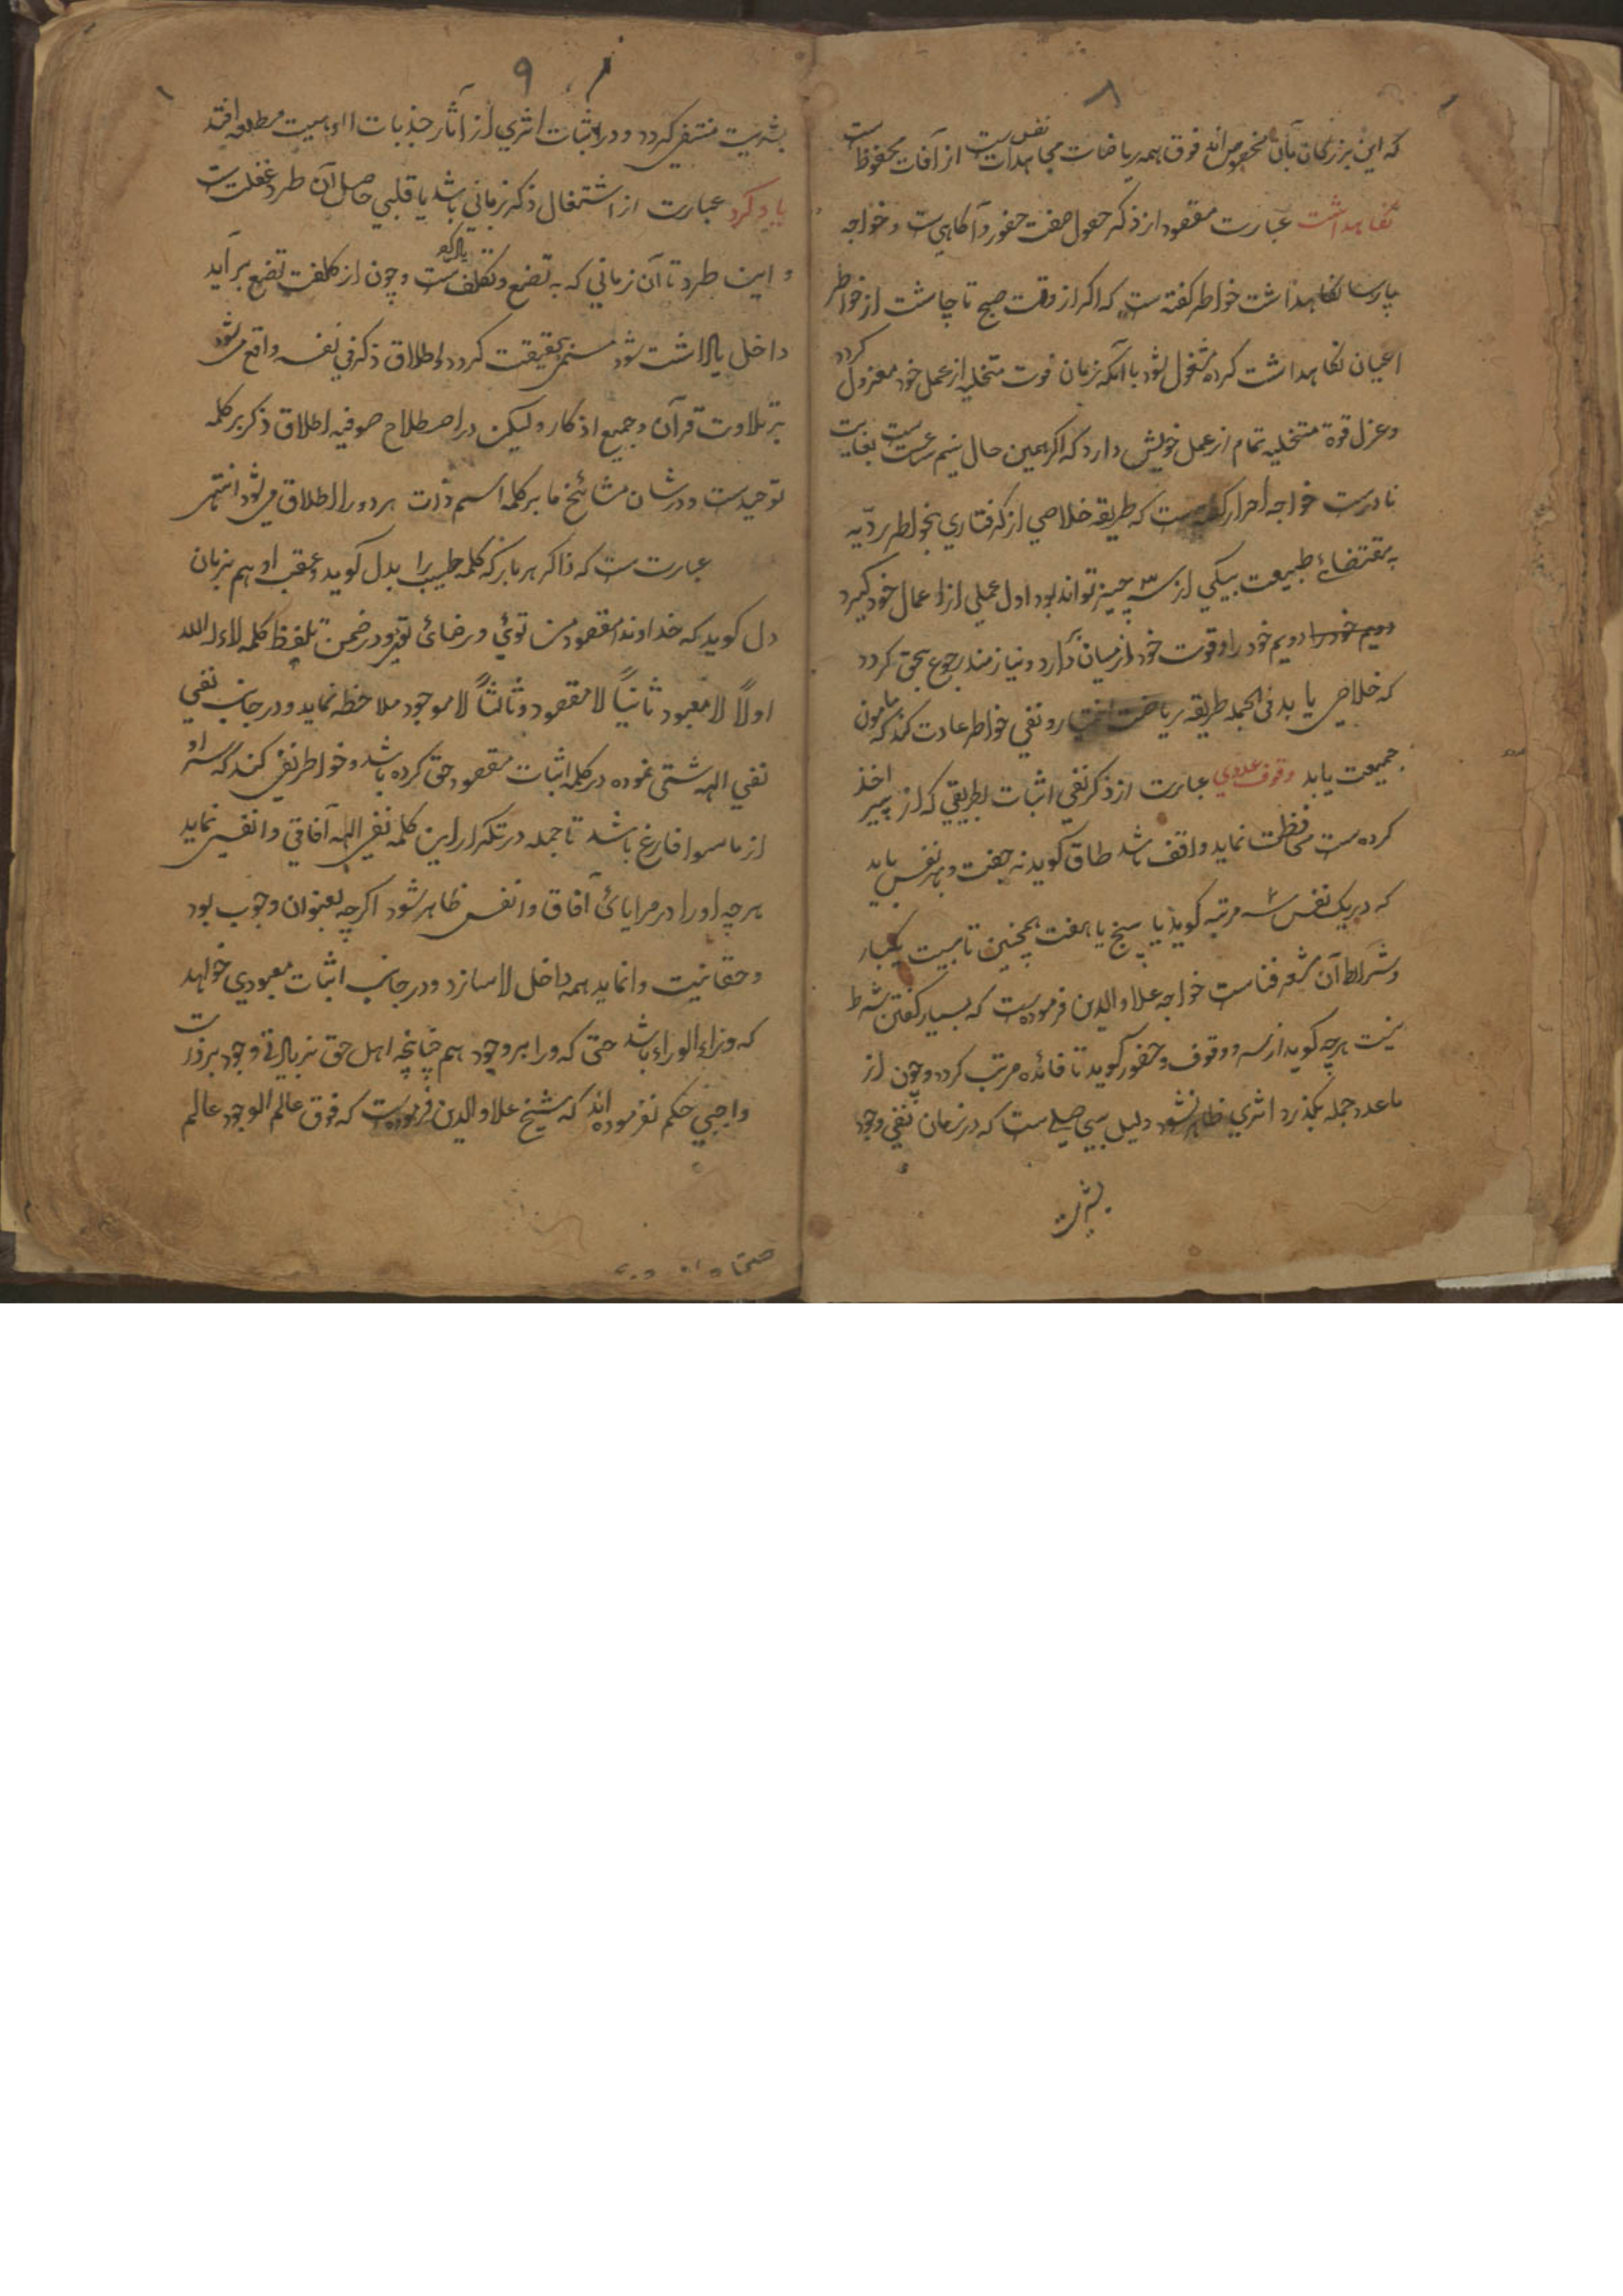 ۸
که این بزرگان بآن مخصوص اند فوق همه ریاضات مجاهدات نفس ست از آفات محفوظ ست
نگاهداشت عبارت مقصود از ذکر حصول صفت حضور و آگاهی ست و خواجه
پارسا نگاهداشت خواطر گفته ست که اگر از وقت صبح تا چاشت از خواطر
اعیان نگاهداشت کرده مشغول شود با آنکه بزمان فوت متخلیه از عمل خود معزول گردد
و عزل قوة متخلیه تمام از عمل خویش دارد که اگر همین حال نیم ساعت ست بغایت
نادرست خواجه احرار گفته ست که طریقه خلاصی از گرفتاری بخواطر ردّیه
به مقتضائ طبیعت بیکی از سه چیز تواند بود اول عملی از اعمال خود گیرد
دویم خود را دویم خود را و قوت خود از میان گذارد و نیازمند رجوع بحق گردد
که خلاص یابد فی الجمله طریقه ریاضت اختیار و نفی خواطر عادت کند که مامون
جمیعت یابد وقوف عددی عبارت از ذکر نفی اثبات بطریقی که از پیر اخذ
کرده ست محافظت نماید واقف باشد طاق گوید نه جفت و بهر نفس باید
که در یک نفس سه مرتبه گوید یا پنج یا هفت همچنین تا بیست یکبار
و شرائط آن شعر فناست خواجه علاو الدین فرموده ست که بسیار گفتن شرط
نیست هرچه گوید از سر وقوف و حضور گوید تا فائده مرتب گردد و چون از
ما عدد جمله بگذرد اثری ظاهر نشود دلیل بی حاصلی ست که در زمان نفی وجود
بشریت
۹
بشریت منتفی گردد و در اثبات اثری از آثار جذبات الوهیت مطلعه افتد
یاد کرد عبارت از اشتغال ذکر زبانی باشد یا قلبی حاصل آن طرد غفلت ست
و این طرد تا آن زمانی که به تضع و تکلف ست یاد کرد و چون از کلفت تضع برآید
داخل یادداشت شود مستمر بحقیقت گردد اطلاق ذکر فی نفسه واقع میشود
بر تلاوت قرآن و جمیع اذکار ولیکن در اصطلاح صوفیه اطلاق ذکر بر کلمه
توحیدست و در شان مشائخ ما بر کلمه اسم ذات هر دو را اطلاق میشود انتهی
عبارت ست که ذاکر هر بار که کلمه طیبه را بدل گوید و عقب او هم بزبان
دل گوید که خداوندا مقصود من توئی و رضائ تو و در ضمن تلفظ کلمه لا اله الا الله
اولاً لا معبود ثانیاً لا مقصود و ثالثاً لا موجود ملاحظه نماید و در جانب نفی
نفی الهه شتی نموده در کلمه اثبات مقصود حق کرده باشد و خواطر نفی کند که سر او
از ما سوا فارغ باشد تا جمله در تکرار این کلمه نفی الهه آفاقی و انفسی نماید
هرچه او را در مرایائ آفاق و انفس ظاهر شود اگرچه بعنوان وجوب بود
و حقانیت وانماید همه داخل لا سازد و در جانب اثبات معبودی خواهد
که وراء الوراء باشد حتی که ورا بر وجود هم چنانچه اهل حق بزیادتی وجود بر ذات
واجبی حکم نفرموده اند که شیخ علاو الدین فرموده ست که فوق عالم الوجود عالم